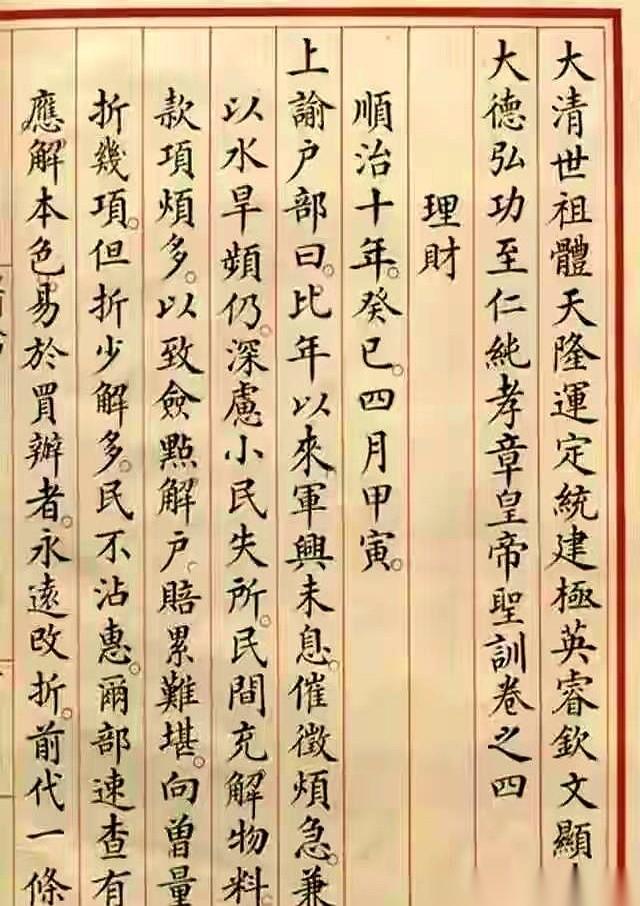 大清世祖體天隆運定統建極英睿欽文顯
大德弘功至仁純孝章皇帝聖訓卷之四
理財
順治十年。癸巳。四月甲寅。
上諭户部曰。比年以來軍興未息。催徵煩急。兼
以水旱頻仍。深慮小民失所。民間充解物料。
款項煩多。以致僉點解户。賠累難堪。向曾量
折幾項。但折少解多。民不沾惠。爾部速查有
應解本色。易於買辦者。永遠改折。前代一條